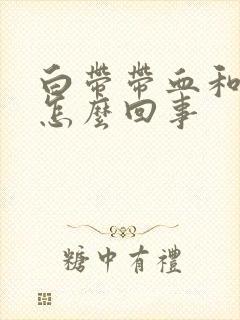 白帶帶血和
怎麼回事
糖中有禮